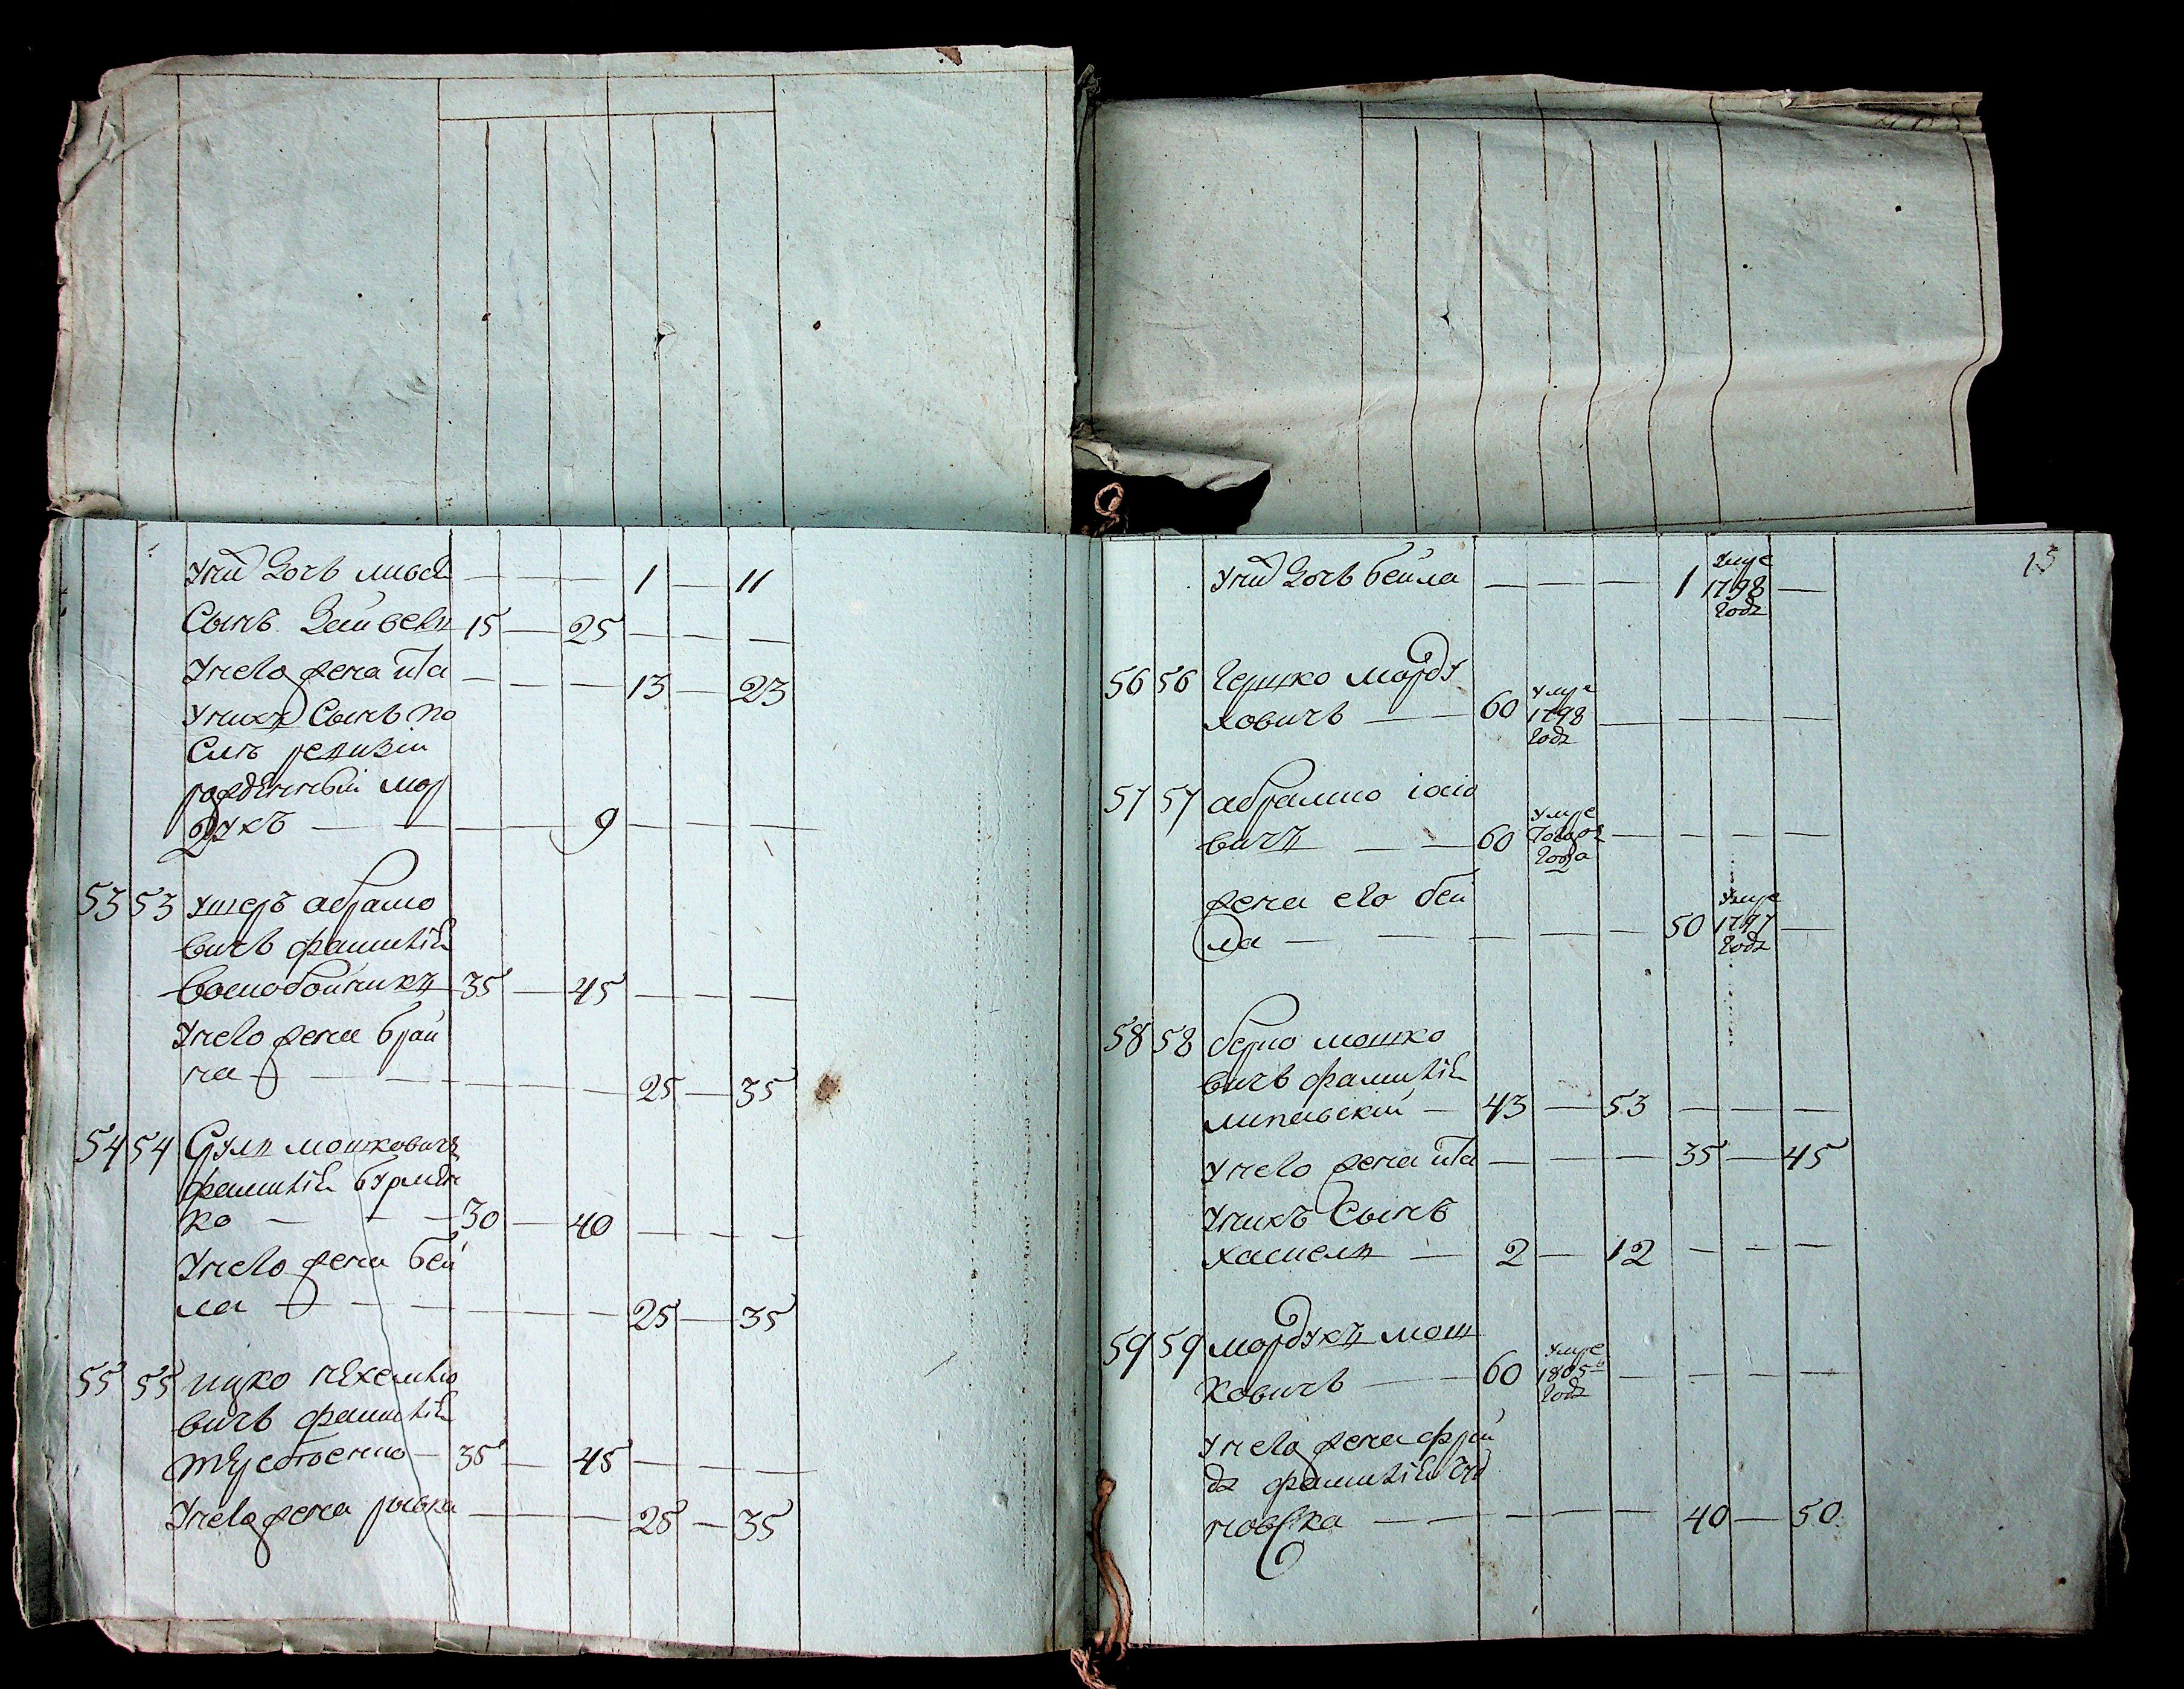 У ней дочь ливса — — — 1 — 11
Сынъ Зейвель 15 — 25 — — —
У него жена ита — — — 13 — 23
У нихъ Сынъ по
слѣ ревизіи
рожденный мор
духъ — — — 9 — — —
53 53 Ушеръ абрамо
вичъ фамиліи
Воскобойникъ 35 — 45 — — —
У него жена брай
на — — — — 25 — 35
54 54 Сруль мошковичъ
фамиліи
ко — — — 30 — 40 — — —
У него жена бей
ла — — — — — 25 — 35
55 55 ицко нехемио
вичъ фамиліи
— 35 — 45 — — —
У него жена рывка — — — 25 — 35
13
У ней дочь бейла — — — 1 умре 1798 годъ —
56 56 Гершко морду
ховичъ — — 60 умре 1798 годъ — — — —
57 57 абрамко іосіо
вичъ — — 60 умре того жъ года — — — —
жена его бей
ла — — — — — 50 умре 1797 годъ —
58 58 берко мошко
вичъ фамиліи
липавскій — 43 — 53 — — —
У него жена ита — — — 35 — 45
У нихъ Сынъ
хаскель — 2 — 12 — — —
59 59 мордухъ мош
ковичъ — — 60 умре 1805 годъ — — — —
У него жена фрей
да фамиліи
— — — — — 40 — 50